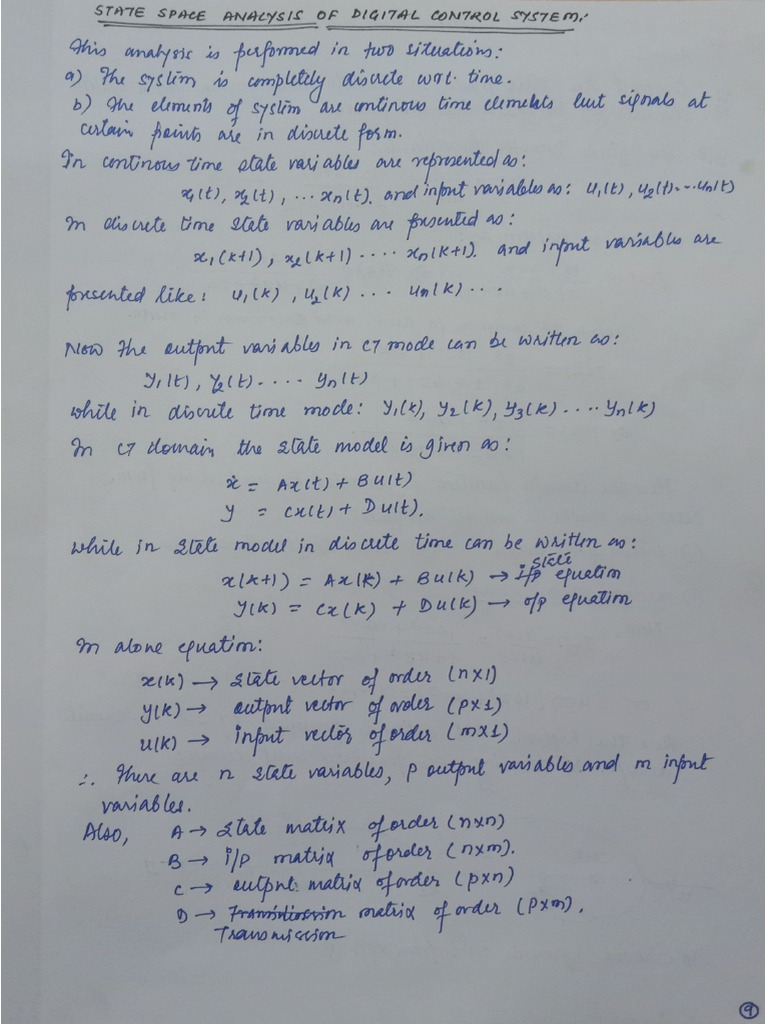 STATE SPACE ANALYSIS OF DIGITAL CONTROL SYSTEM:
This analysis is performed in two situations:
a) The system is completely discrete w.r.t. time.
b) The elements of system are continous time elements but signals at
certain points are in discrete form.
In continous time state variables are represented as:
x1(t), x2(t), ... xn(t). and input variables as: u1(t), u2(t)...un(t)
In discrete time state variables are presented as:
x1(k+1), x2(k+1) .... xn(k+1). and input variables are
presented like: u1(k), u2(k) ... un(k)...
Now the output variables in CT mode can be written as:
y1(t), y2(t).... yn(t)
while in discrete time mode: y1(k), y2(k), y3(k) .... yn(k)
In CT domain the state model is given as:
ẋ = Ax(t) + Bu(t)
y = Cx(t) + Du(t).
while in state model in discrete time can be written as:
x(k+1) = Ax(k) + Bu(k) → state i/p equation
y(k) = Cx(k) + Du(k) → o/p equation
In above equation:
x(k) → state vector of order (n×1)
y(k) → output vector of order (p×1)
u(k) → input vector of order (m×1)
∴ There are n state variables, p output variables and m input
variables.
Also, A → state matrix of order (n×n)
B → i/p matrix of order (n×m).
C → output matrix of order (p×n)
D → matrix of order (p×m).
Transmission
9